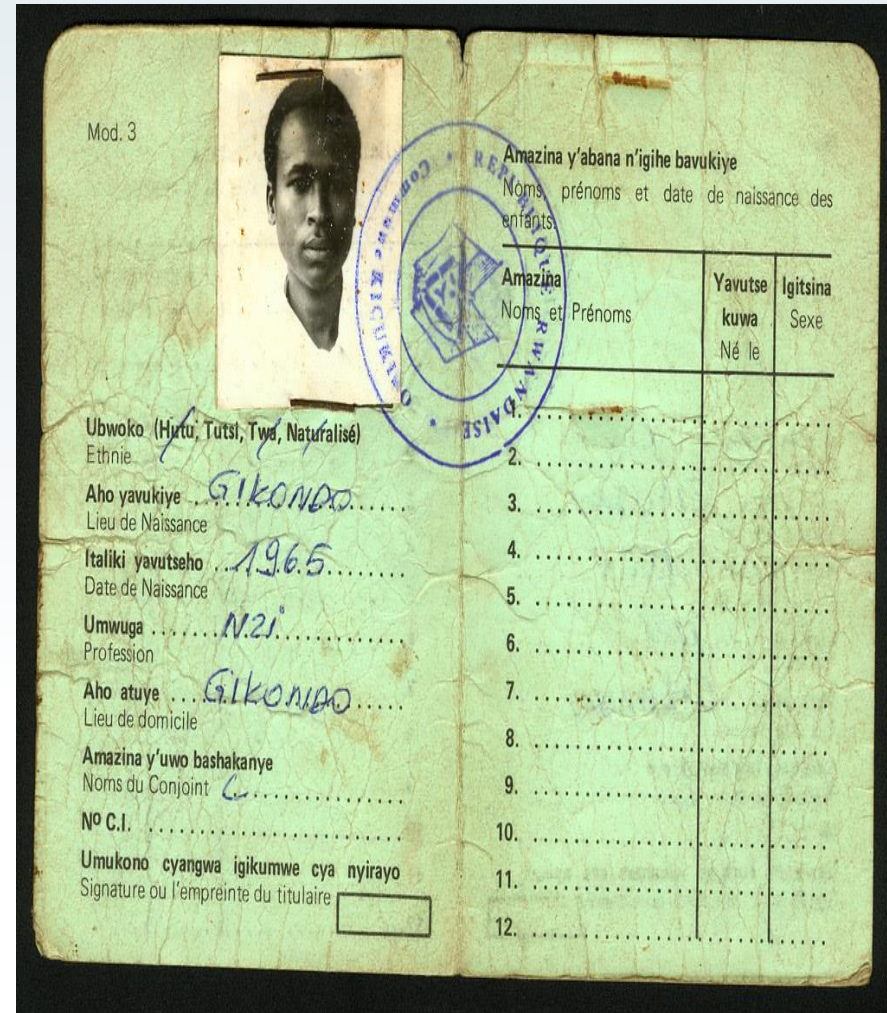 Mod. 3
Ubwoko (Hutu, Tutsi, Twa, Naturalisé)
Ethnie
Aho yavukiye ..GIKONDO......
Lieu de Naissance
Italiki yavutseho ..1965........
Date de Naissance
Umwuga .......N2i.............
Profession
Aho atuye ....GIKONDO......
Lieu de domicile
Amazina y'uwo bashakanye
Noms du Conjoint C..................
Nº C.I. ................................
Umukono cyangwa igikumwe cya nyirayo
Signature ou l'empreinte du titulaire
REPUBLIQUE RWANDAISE
Commune KICUKIRO
Amazina y'abana n'igihe bavukiye
Noms, prénoms et date de naissance des
enfants.
Amazina
Noms et Prénoms
Yavutse
kuwa
Né le
Igitsina
Sexe
1. ........................................
2. ........................................
3. ........................................
4. ........................................
5. ........................................
6. ........................................
7. ........................................
8. ........................................
9. ........................................
10. ........................................
11. ........................................
12. ........................................